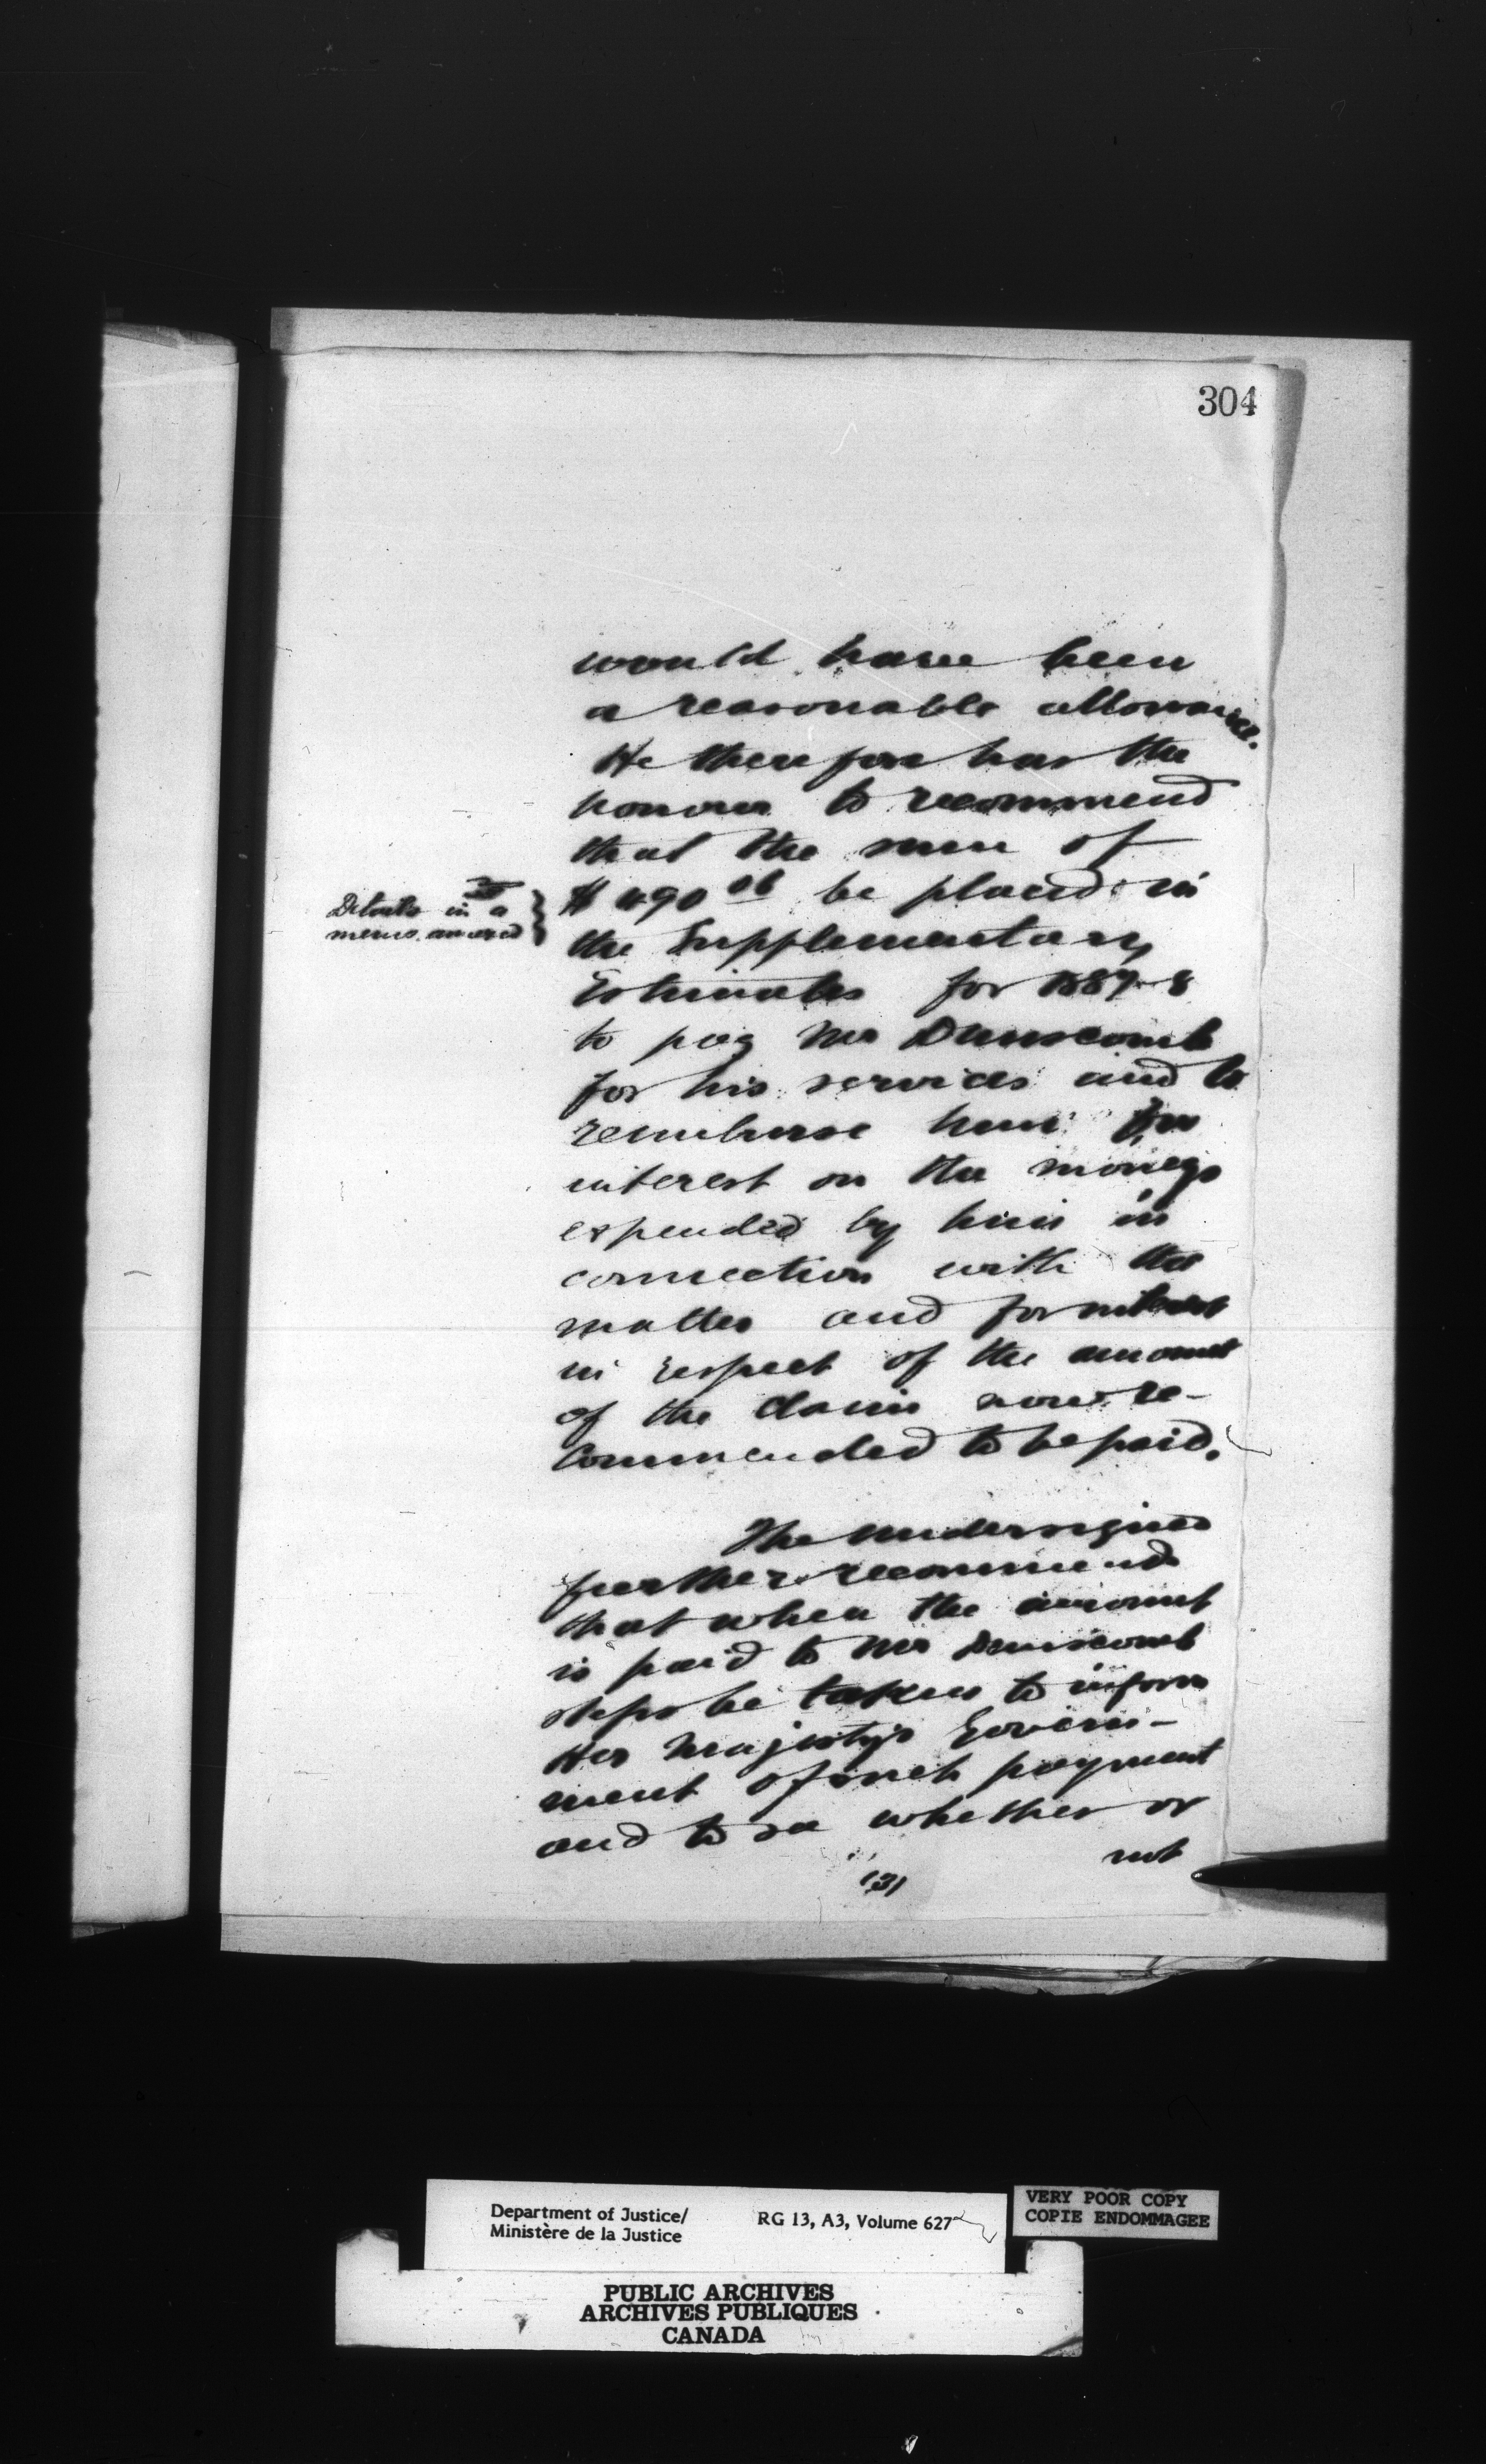 304
would have been
a reasonable allowance.
He therefore has the
honour to recommend
that the sum of
Details in a
memo. annexed
$ 490 06 be placed in
the Supplementary
Estimates for 1887-8
to pay Mr Dunscomb
for his services and to
reimburse him for
interest on the moneys
expended by him in
connection with the
matter and for interest
in respect of the amount
of the claim now re-
commended to be paid.
The undersigned
further recommends
that when the amount
is paid to Mr Dunscomb
steps be taken to inform
Her Majesty's Govern-
ment of such payment
and to see whether or
not
(3)
Department of Justice/
Ministère de la Justice
RG 13, A3, Volume 627
VERY POOR COPY
COPIE ENDOMMAGEE
PUBLIC ARCHIVES
ARCHIVES PUBLIQUES
CANADA